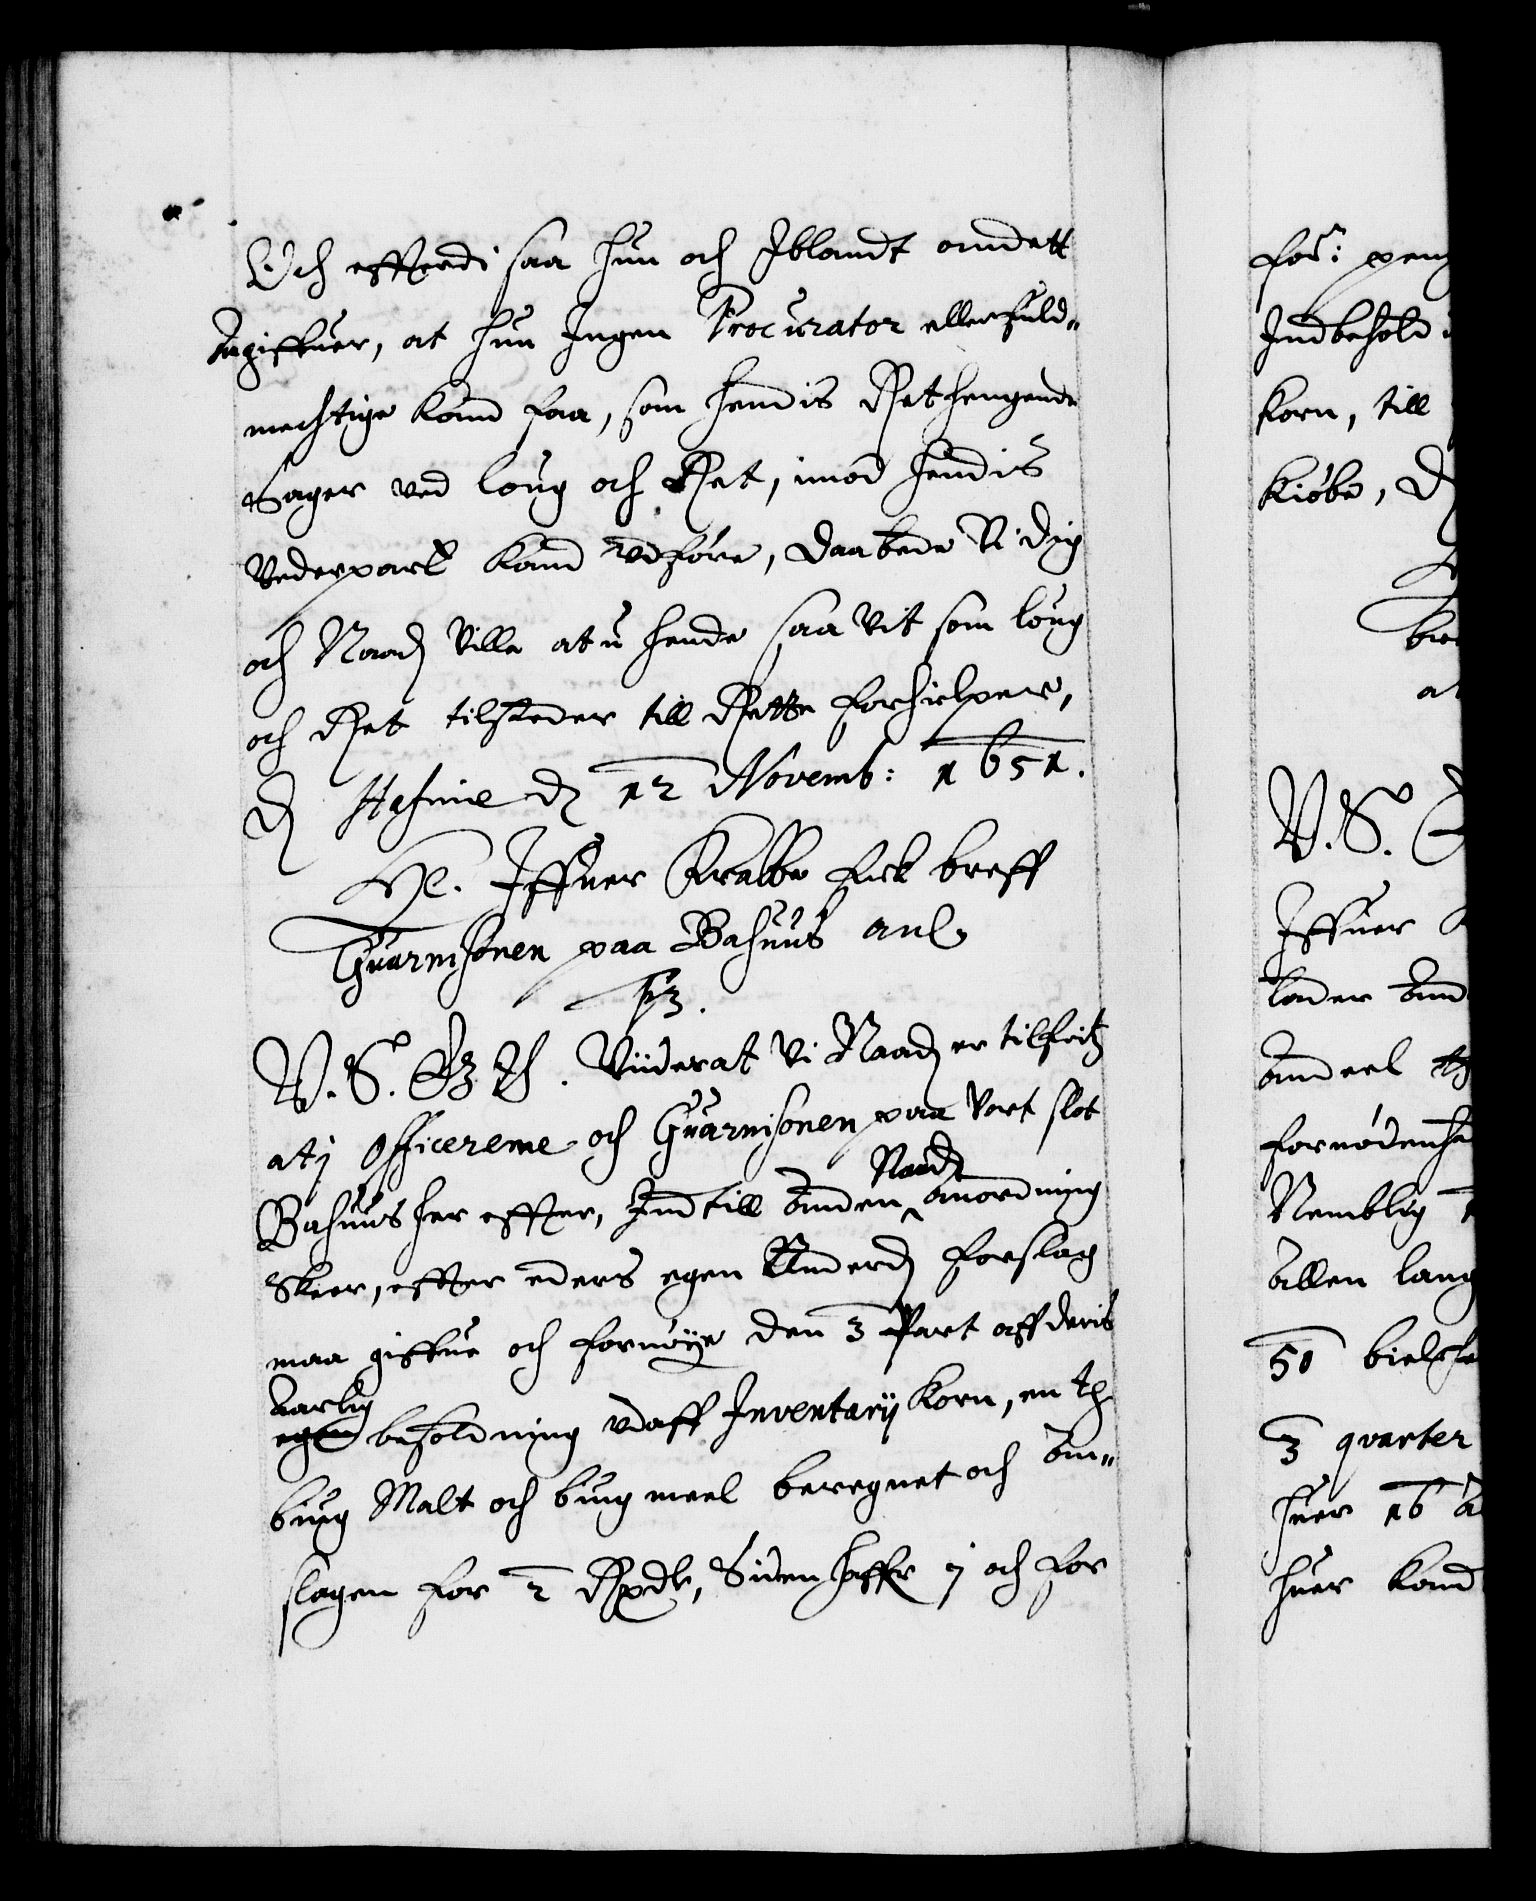 Och effterdi saa hun och Iblandt andett
Angiffuer, at hun Ingen Procurator eller fuld-
mechtige kand faa, som hendis Rethengende
Sager ved loug och Ret, imod hendis
Vederpart kand Vdføre, Daa bede Vi dig
och Naad. Ville at du hende saa Vit som loug
och Ret tilsteder till Rette forhielper,
D Hafniæ D 12 Novemb: 1651.
He. Iffuer Krabbe fick breff
Guarnisonen paa Bahuus anl.
V. S. G. T. Viider at Vi Naad. er tilfritz
at j Officererne och Guarnisonen paa Vort slot
Bahuus her effter, Ind till anden Naad. anordning
Skeer, effter eders egen Underd. forslag
maa giffue och fornøye den 3 Part aff deris
aarlig
egen beholdning vdaff Inventarij Korn, en td.
biug Malt och biug meel beregnet och an-
slagen for 2 Rixdr, Siden haffr j och for
for: peng
Indbehold
Korn, till
Kiøbe, D
V. S. G
Iffuer K
lader
andeel
fornødenhe
Nemblig
allen lang
50 bielcke
3 qvarter
huer 16 a
huer kand